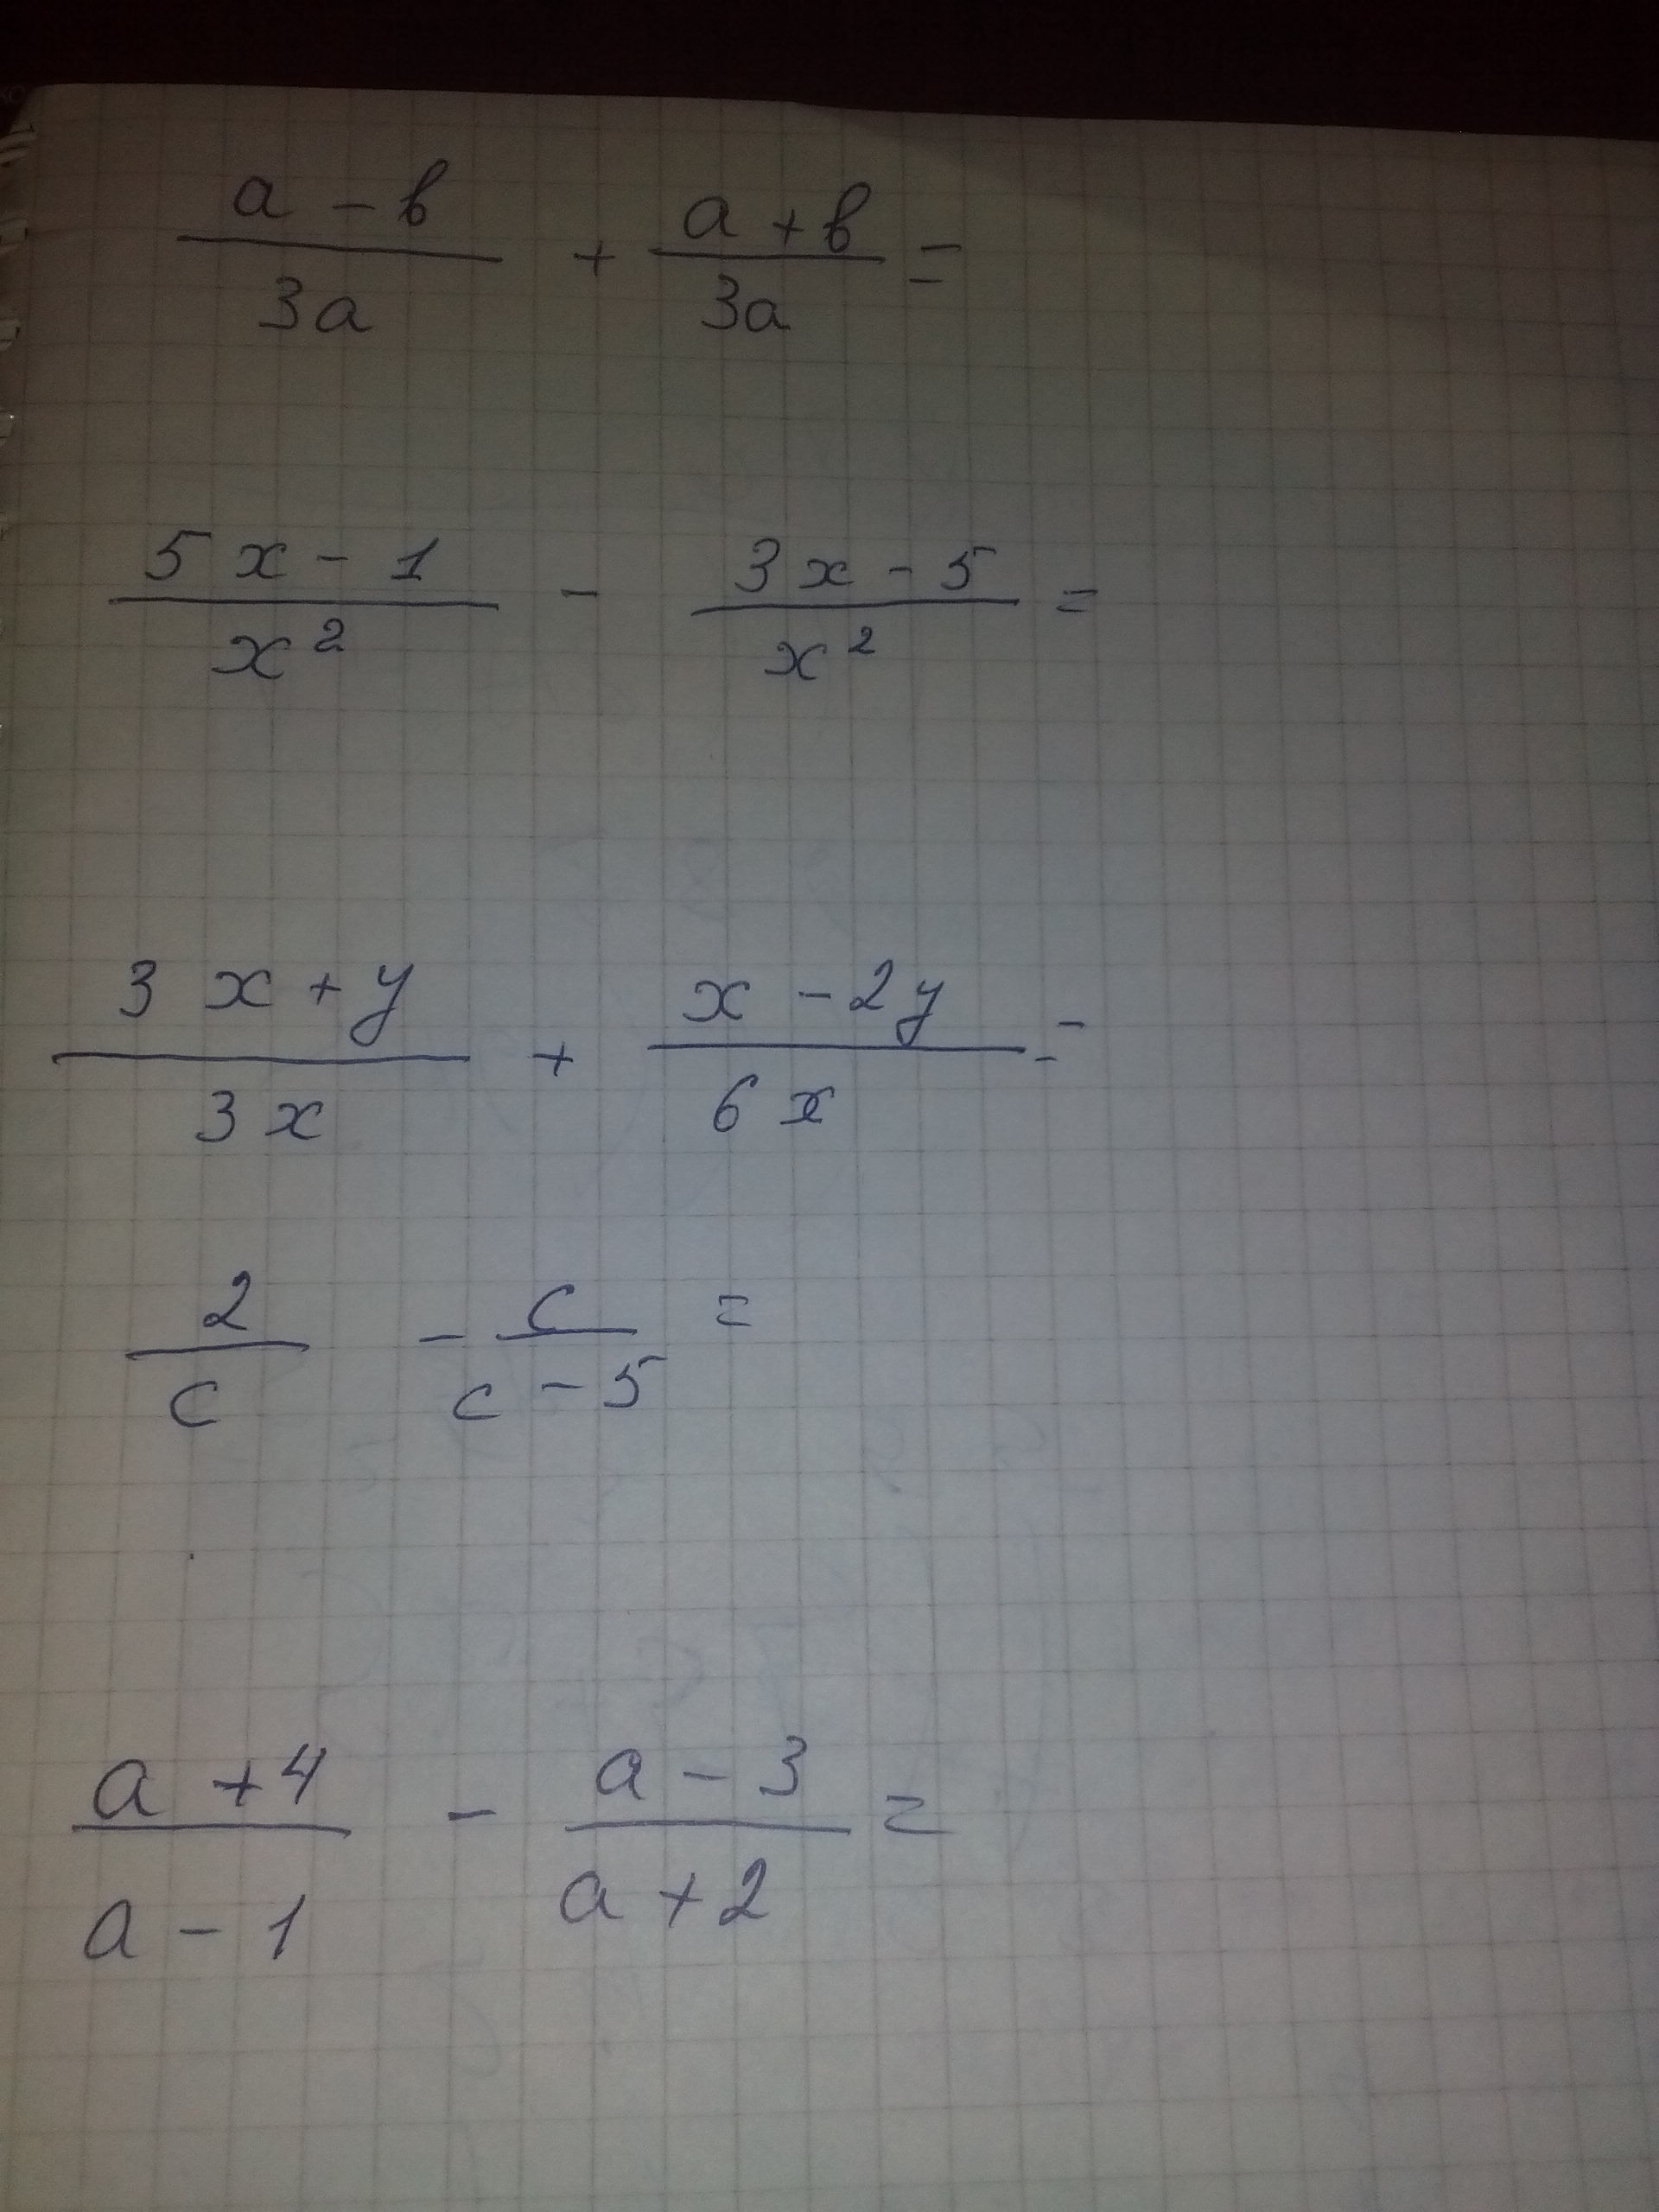 a - b
3a
+
a + b
3a
=
5x - 1
x²
-
3x - 5
x²
=
3x + y
3x
+
x - 2y
6x
=
2
c
-
c
c - 5
=
a + 4
a - 1
-
a - 3
a + 2
=